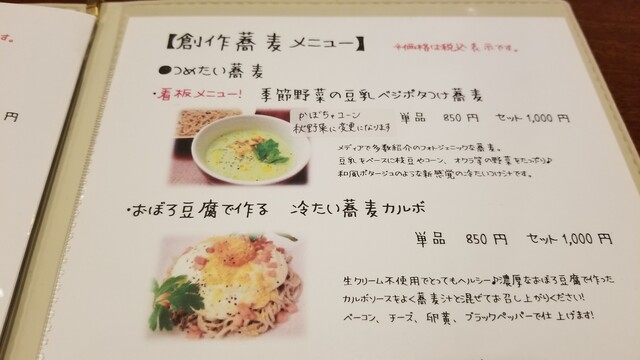 す。
円
【創作蕎麦メニュー】 *価格は税込表示です。
●つめたい蕎麦
・看板メニュー! 季節野菜の豆乳ベジポタつけ蕎麦
かぼちゃコーン
秋野菜に変更になります
単品 850円 セット1,000円
メディアで多数紹介のフォトジェニックな蕎麦。
豆乳をベースに枝豆やコーン、オクラ等の野菜をたっぷり♪
和風ポタージュのような新感覚の冷たいつけ汁です。
・おぼろ豆腐で作る 冷たい蕎麦カルボ
単品 850円 セット1,000円
生クリーム不使用でとってもヘルシー♪濃厚なおぼろ豆腐で作った
カルボソースをよく蕎麦汁と混ぜてお召し上がりください!
ベーコン、チーズ、卵黄、ブラックペッパーで仕上げます!